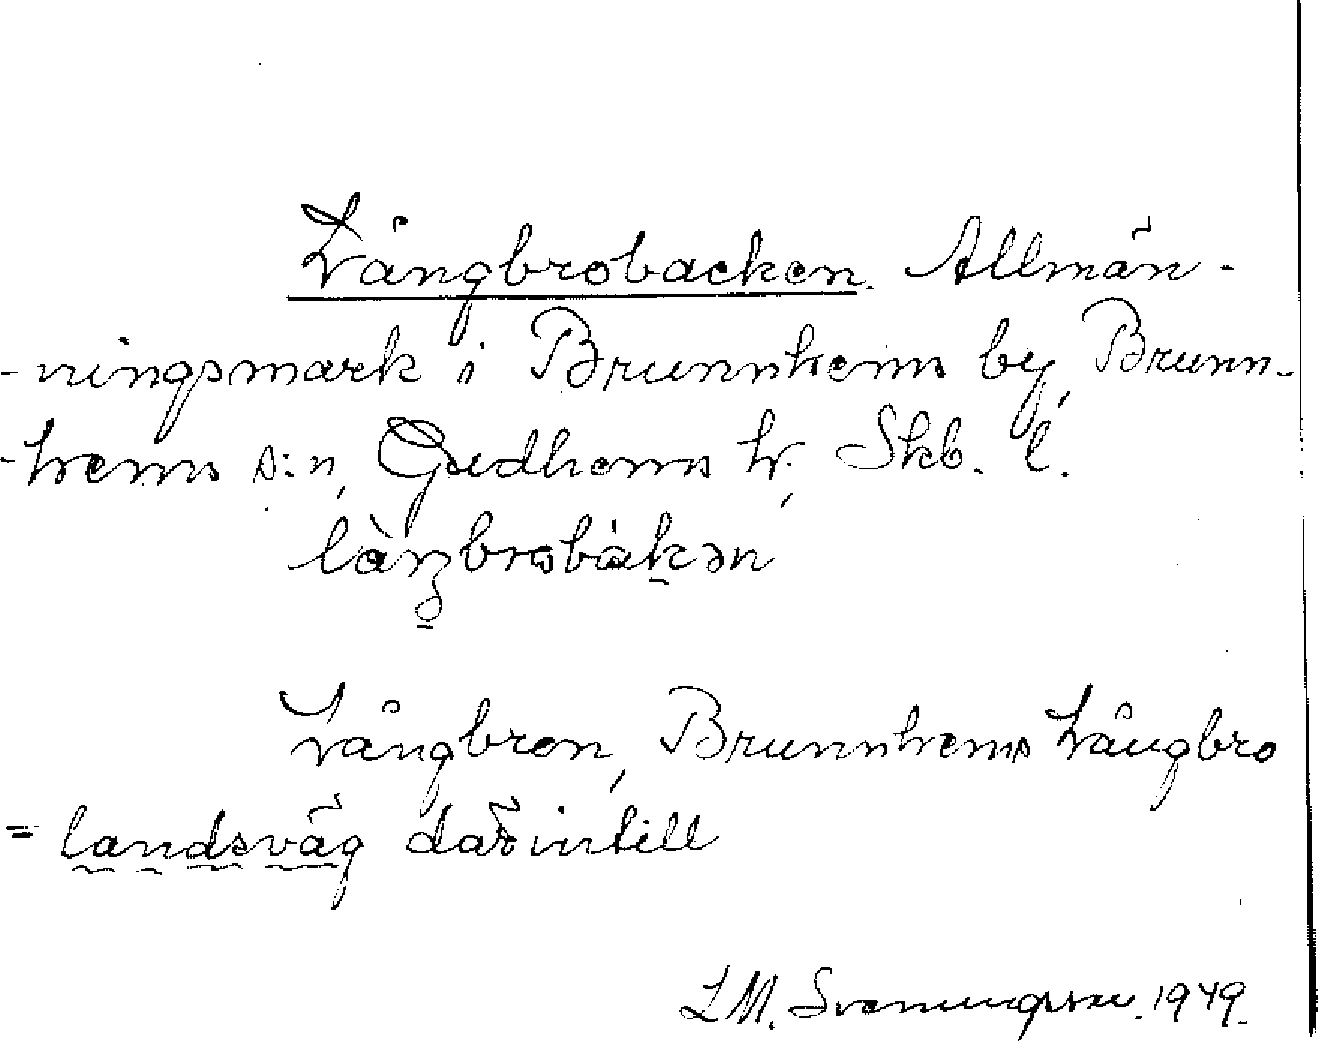 Långbrobacken. Allmän-
-ningsmark i Brunnhems by, Brunn-
-hems s:n, Gudhems hr, Skb. l.
làŋbrobàkən
Långbron, Brunnhems Långbro
= landsväg därintill
L M. Svenungsson. 1949.